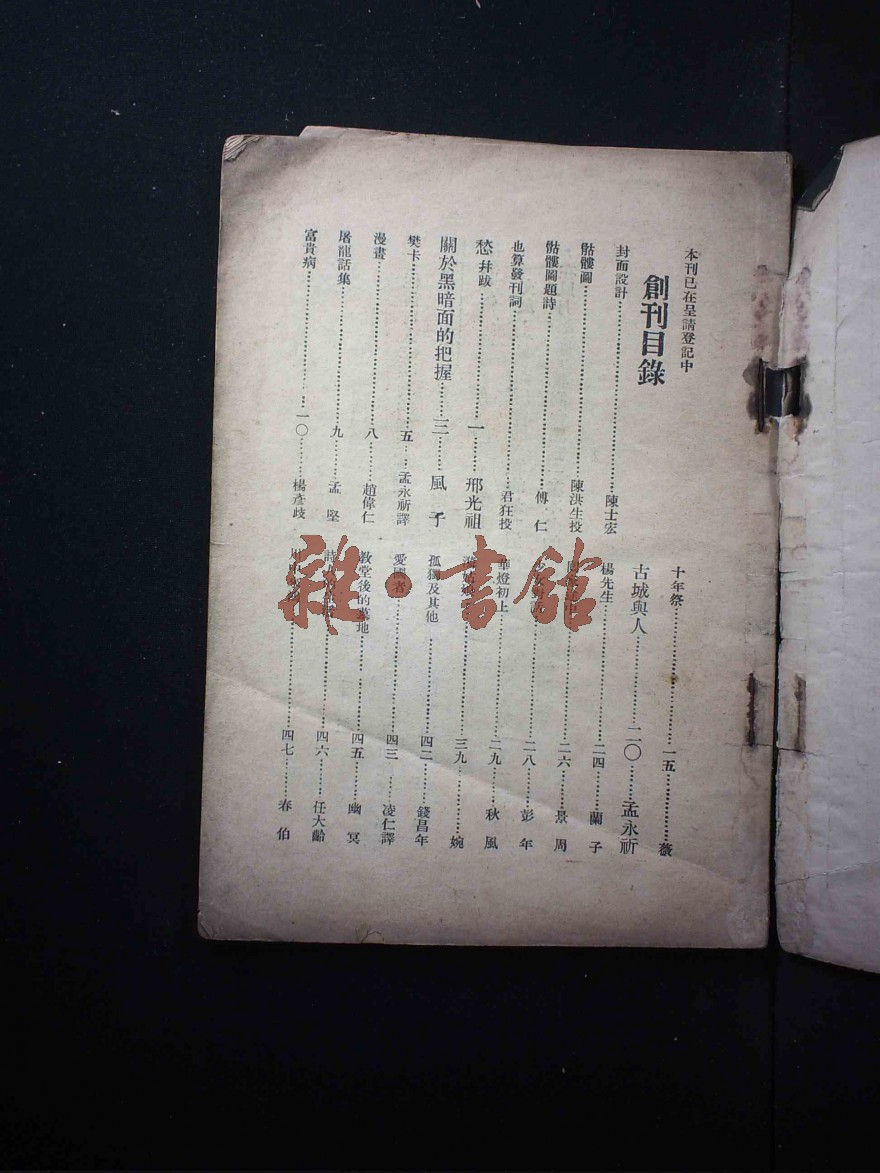 本刊已在呈請登記中
創刊目錄
封面設計……陳士宏
骷髏圖……陳洪生投
骷髏圖題詩……傅仁
也算發刊詞……君狂投
愁并跋……一……邢光祖
關於黑暗面的把握……三……風子
樊卡……五……孟永祈譯
漫畫……八……趙偉仁
屠龍話集……九……孟堅
富貴病……一〇……楊彥歧
十年祭……一五……薇
古城與人……二〇……孟永祈
楊先生……二四……蘭子
……二六……景周
……二八……彭年
華燈初上……二九……秋風
……三九……婉
孤獨及其他……四二……錢昌年
愛國者……四三……凌仁譯
教堂後的墓地……四五……幽冥
詩……四六……任大齡
……四七……春伯
雜·書館